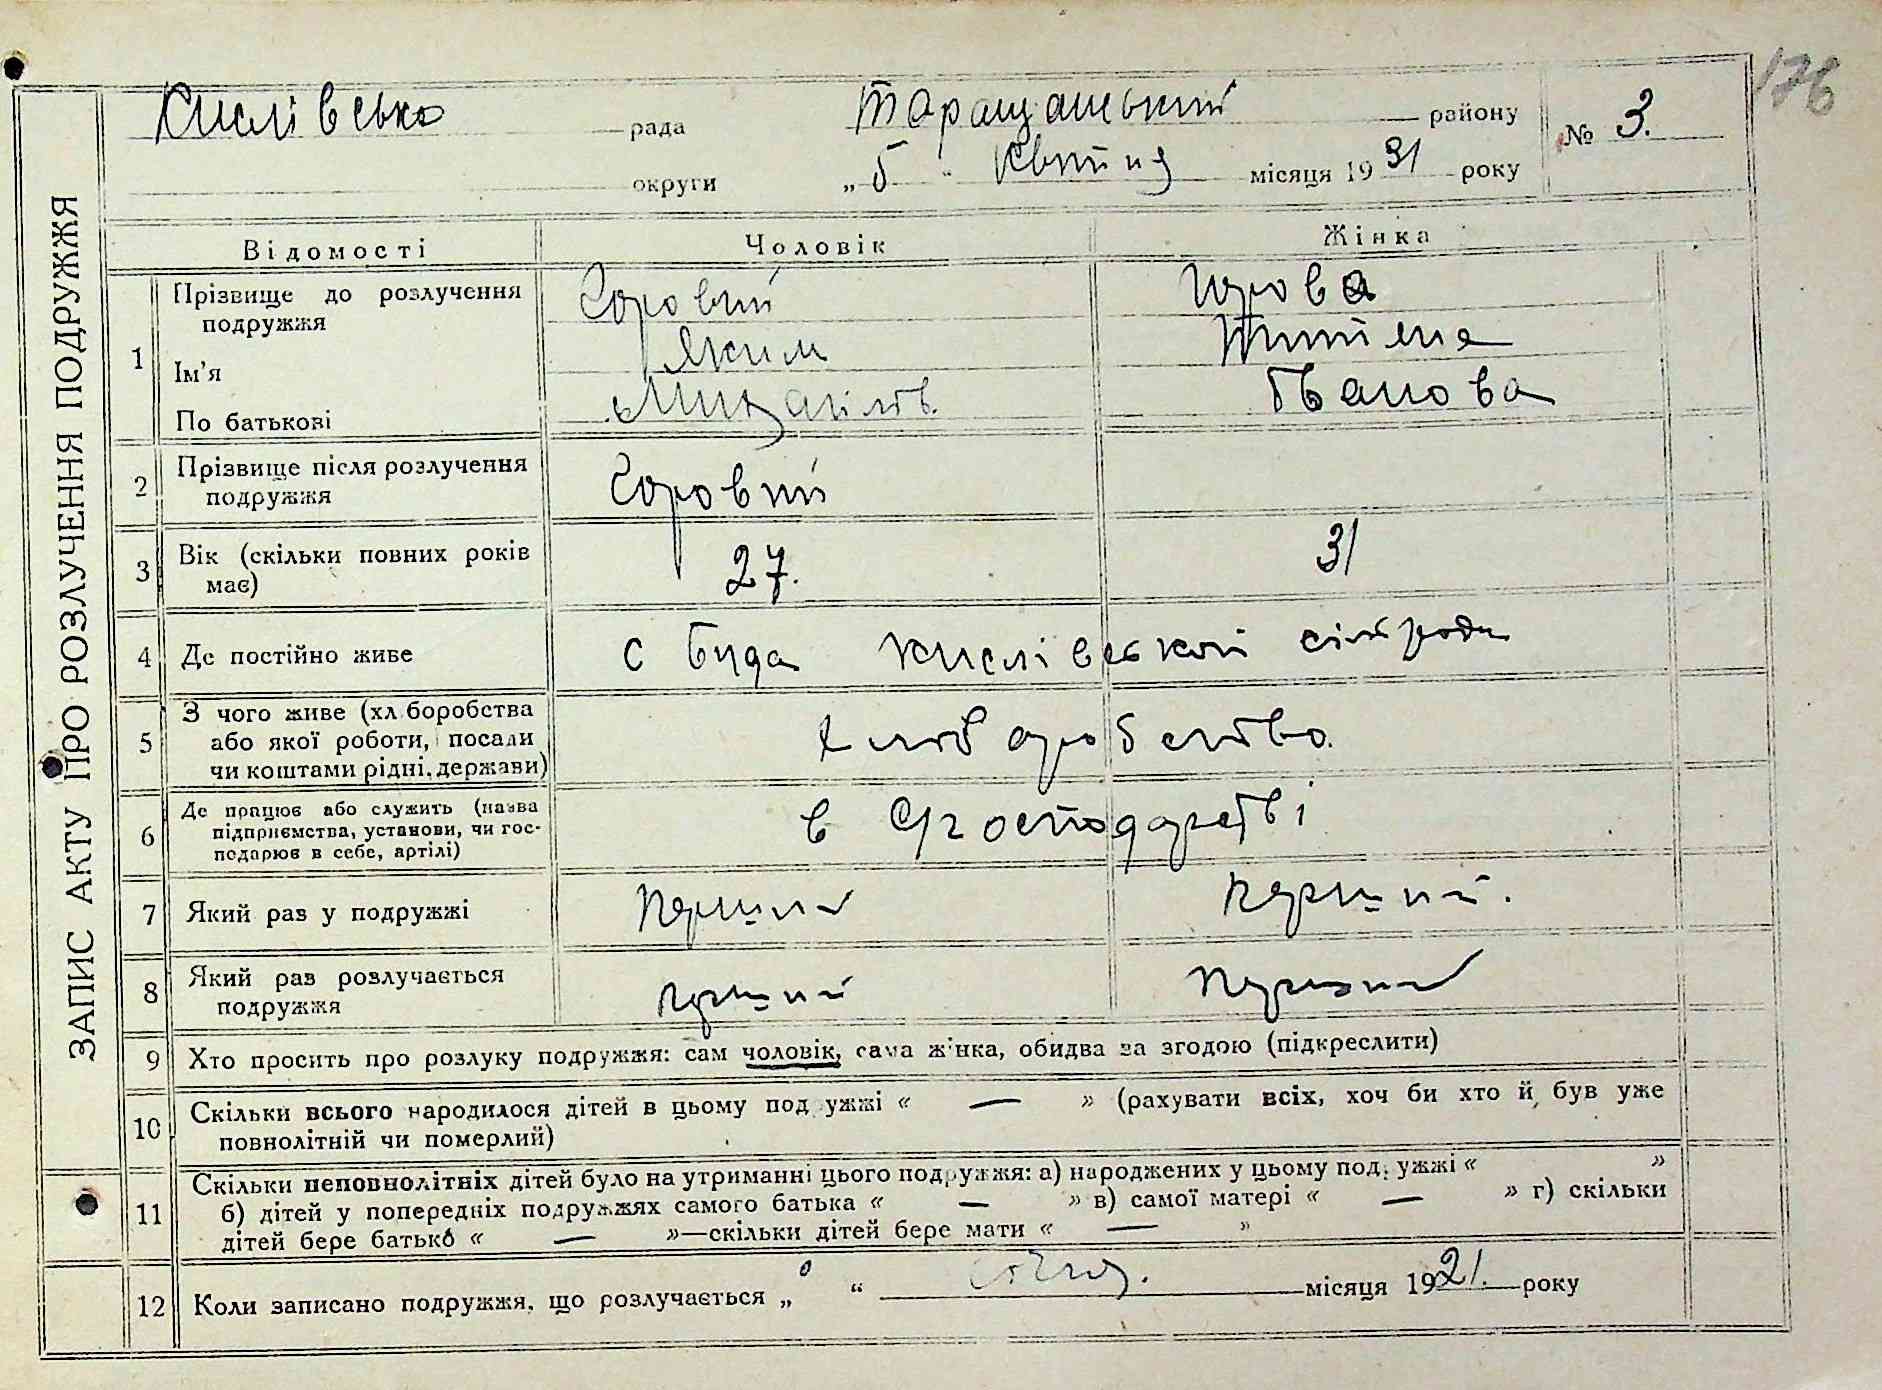 176
Кислівська рада Таращанський району № 3.
округи „5" Квітня місяця 1931 року
ЗАПИС АКТУ ПРО РОЗЛУЧЕННЯ ПОДРУЖЖЯ
Відомості Чоловік Жінка
1 Прізвище до розлучення подружжя
Ім'я Яким
По батькові Іванова
2 Прізвище після розлучення
подружжя
3 Вік (скільки повних років 27. 31
має)
4 Де постійно живе с Буда Кислівської сільради
5 З чого живе (хліборобства
або якої роботи, посади хліборобство.
чи коштами рідні, держави)
6 Де працює або служить (назва
підприємства, установи, чи гос- в господарстві
подарює в себе, артілі)
7 Який раз у подружжі Перший Перший.
8 Який раз розлучається перший перший
подружжя
9 Хто просить про розлуку подружжя: сам чоловік, сама жінка, обидва за згодою (підкреслити)
10 Скільки всього народилося дітей в цьому подружжі « — » (рахувати всіх, хоч би хто й був уже
повнолітній чи померлий)
11 Скільки неповнолітніх дітей було на утриманні цього подружжя: а) народжених у цьому подружжі « »
б) дітей у попередніх подружжях самого батька « — » в) самої матері « — » г) скільки
дітей бере батько « — »—скільки дітей бере мати « — »
12 Коли записано подружжя, що розлучається „ “ місяця 1921. року